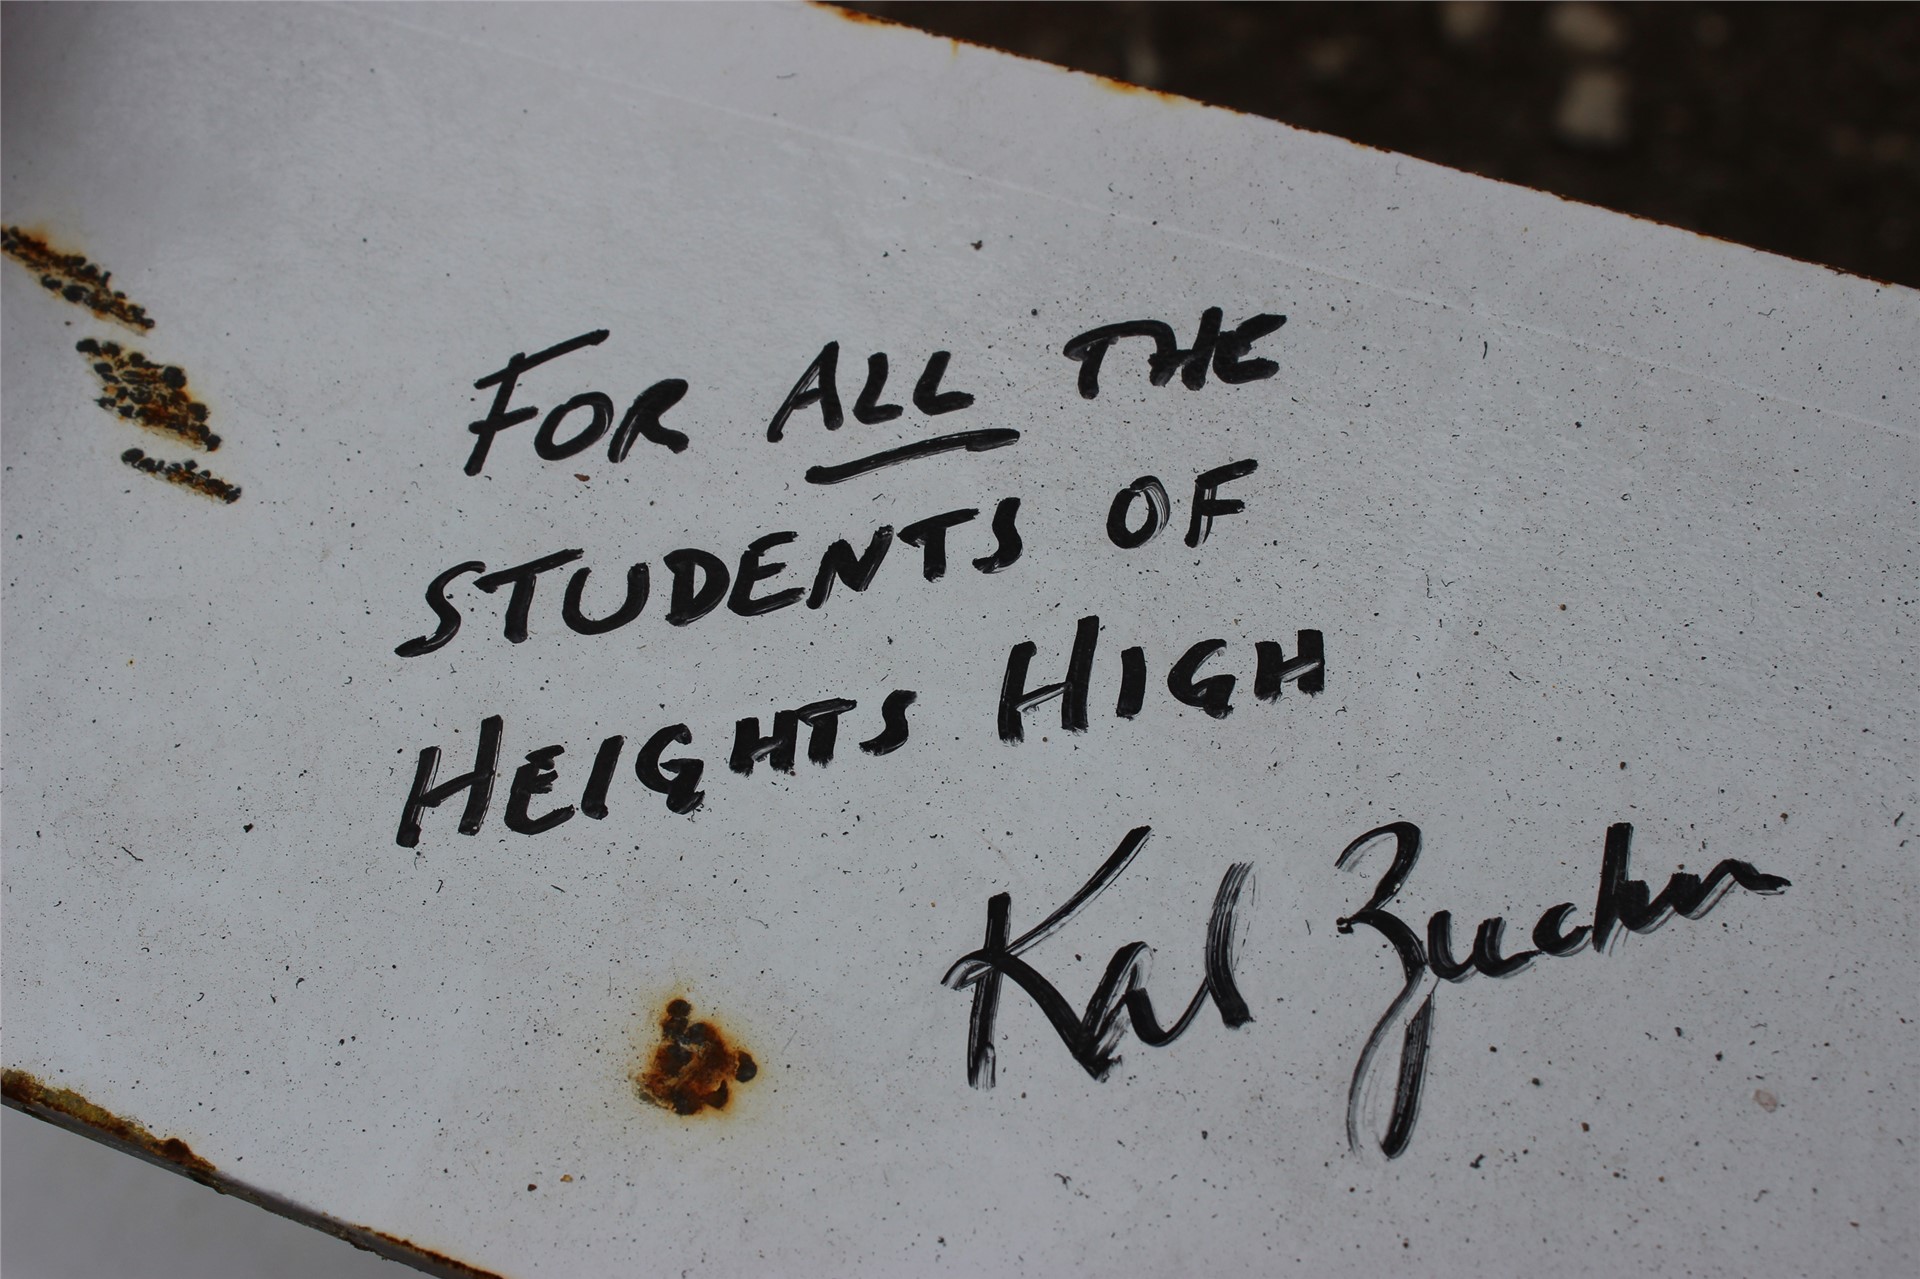 FOR ALL THE
STUDENTS OF
HEIGHTS HIGH
Kal Zucker